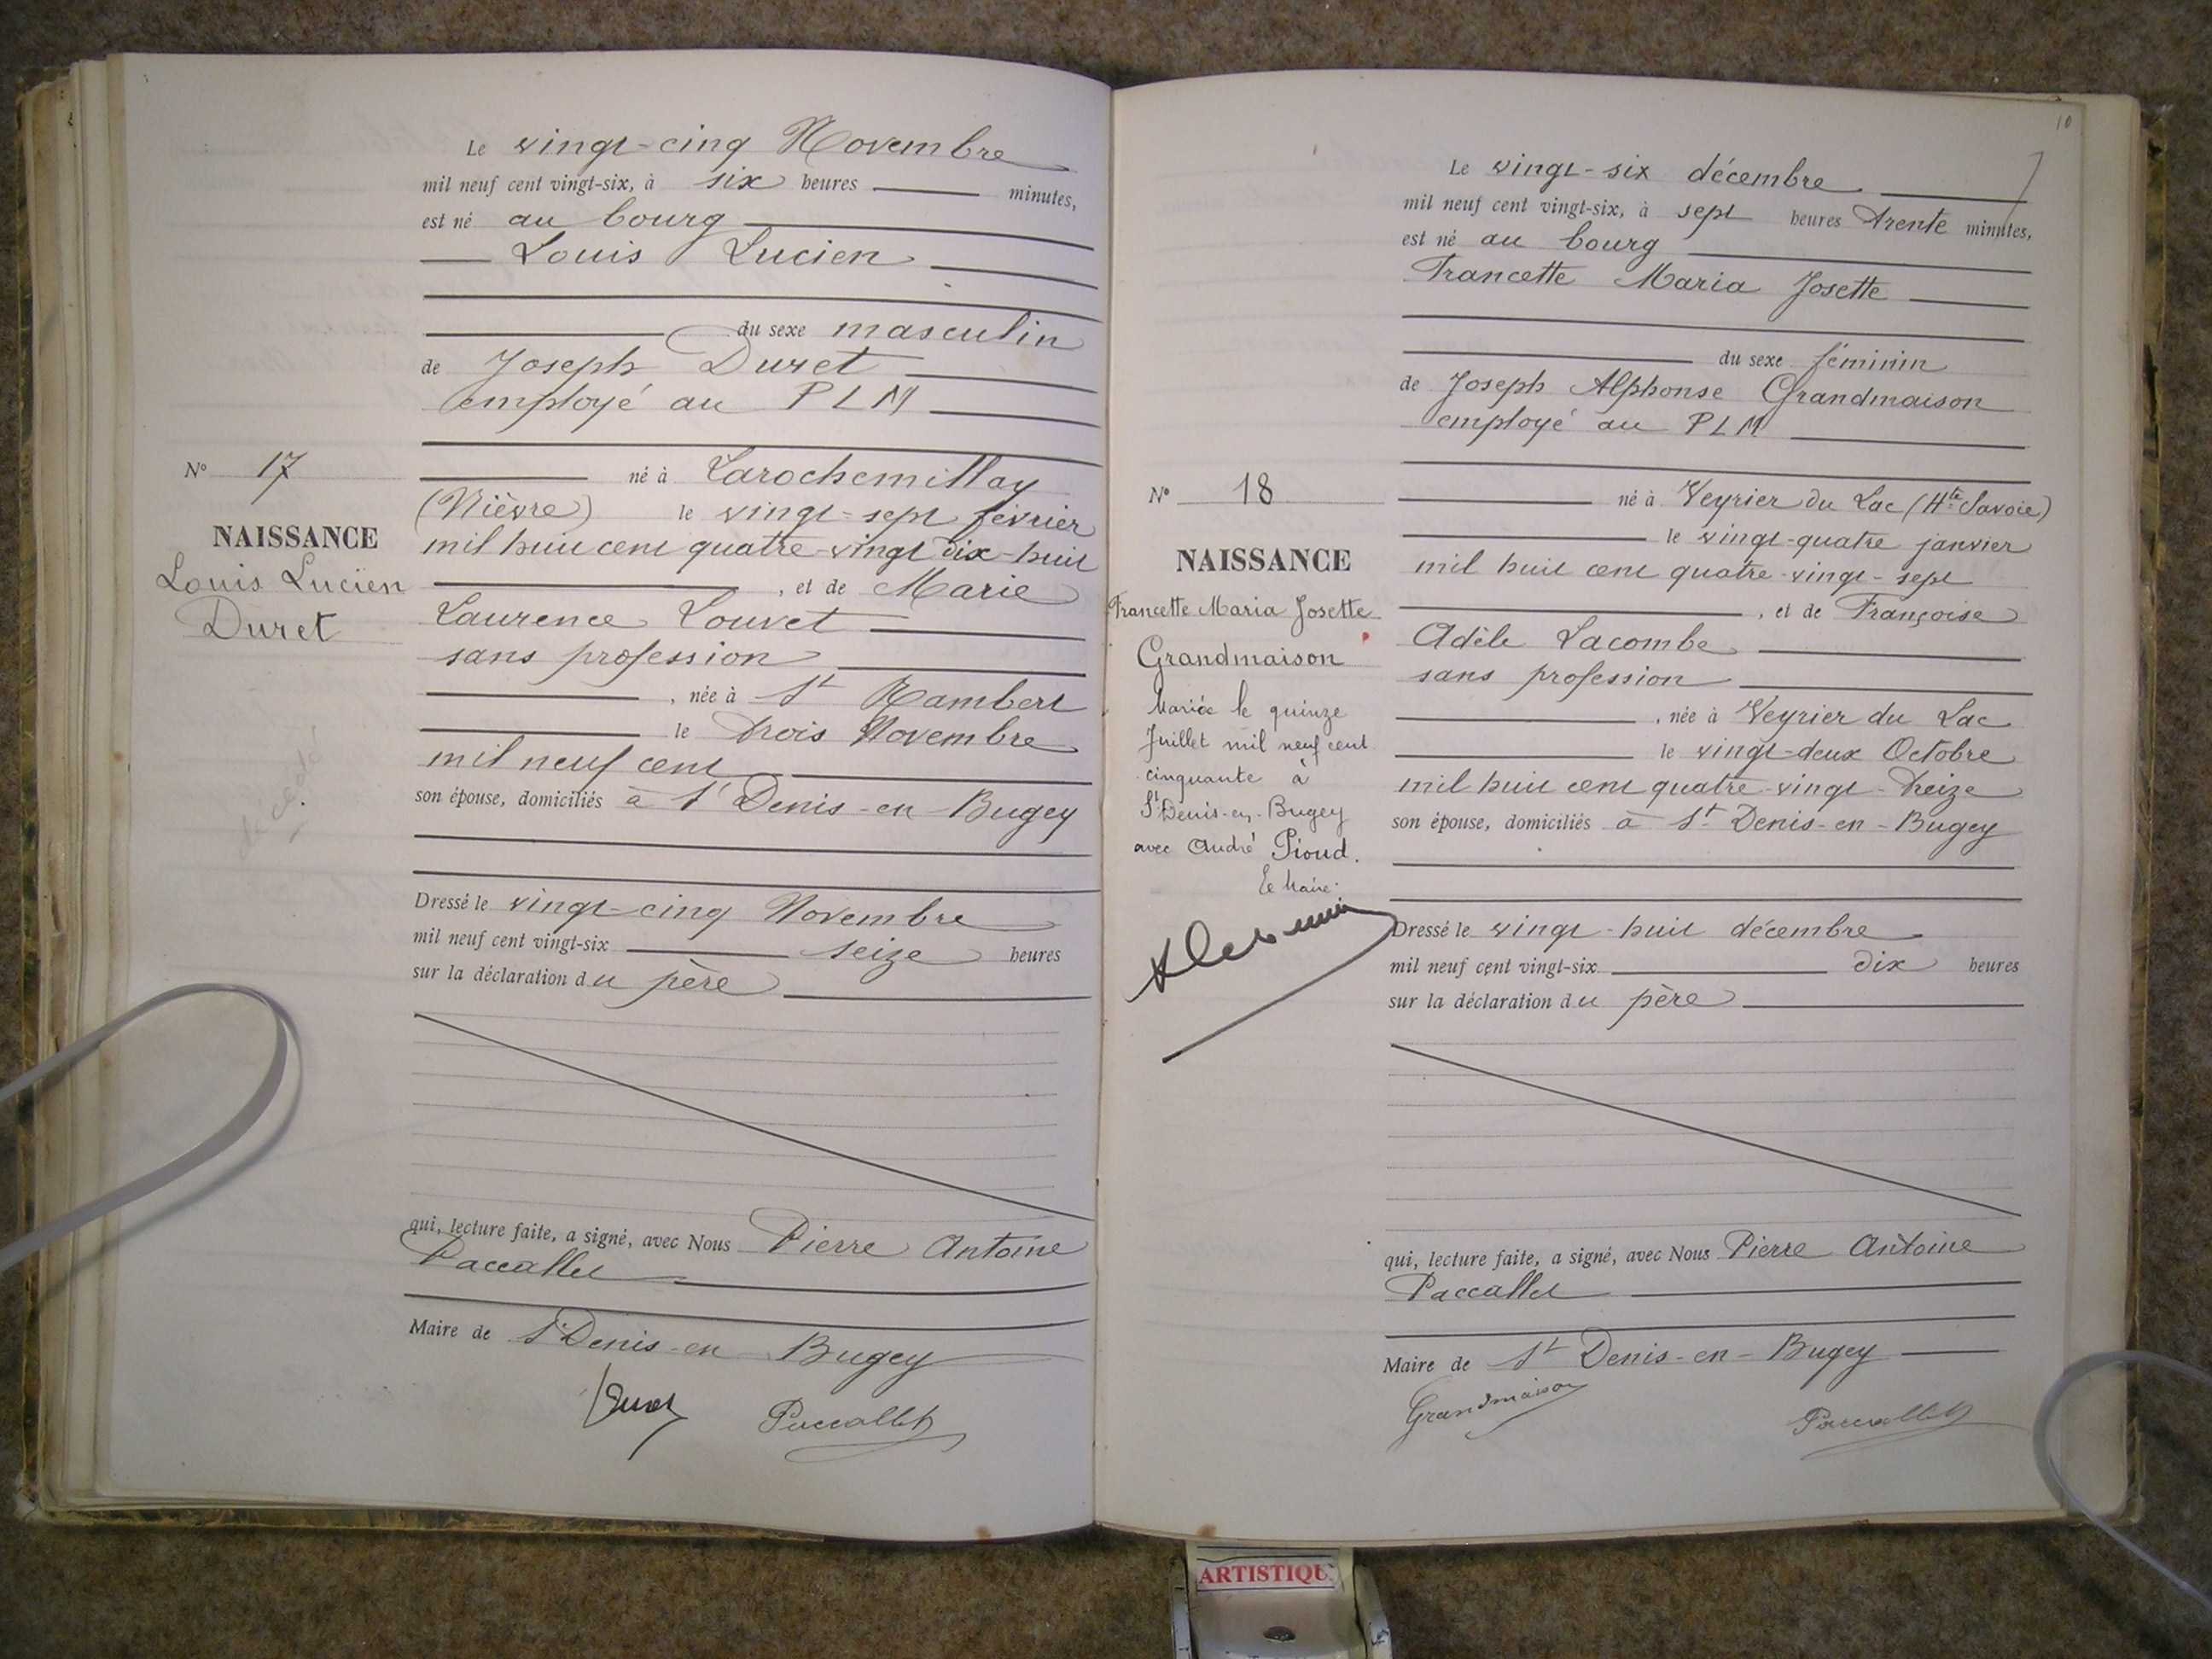 Le vingt-cinq Novembre
mil neuf cent vingt-six, à six heures minutes,
est né au bourg
Louis Lucien
du sexe masculin
de Joseph Duret
employé au PLM
né à Larochemillay
(Nièvre) le vingt-sept février
mil huit cent quatre-vingt dix-huit
, et de Marie
Laurence Louvet
sans profession
, née à St Rambert
le trois Novembre
mil neuf cent
son épouse, domiciliés à St Denis-en-Bugey
Dressé le vingt-cinq Novembre
mil neuf cent vingt-six seize heures
sur la déclaration du père
qui, lecture faite, a signé, avec Nous Pierre Antoine
Paccallet
Maire de St Denis-en-Bugey
Duret Paccallet
No 17
NAISSANCE
Louis Lucien
Duret
décédé
10
Le vingt-six décembre
mil neuf cent vingt-six, à sept heures trente minutes,
est né au bourg
Francette Maria Josette
du sexe féminin
de Joseph Alphonse Grandmaison
employé au PLM
né à Veyrier du Lac (Hte Savoie)
le vingt-quatre janvier
mil huit cent quatre-vingt-sept
, et de Françoise
Adèle Lacombe
sans profession
, née à Veyrier du Lac
le vingt-deux Octobre
mil huit cent quatre-vingt-treize
son épouse, domiciliés à St Denis-en-Bugey
Dressé le vingt-huit décembre
mil neuf cent vingt-six dix heures
sur la déclaration du père
qui, lecture faite, a signé, avec Nous Pierre Antoine
Paccallet
Maire de St Denis-en-Bugey
Grandmaison Paccallet
No 18
NAISSANCE
Francette Maria Josette
Grandmaison
Mariée le quinze
Juillet mil neuf cent
cinquante à
St Denis-en-Bugey
avec André Pioud.
Le Maire.
ARTISTIQU